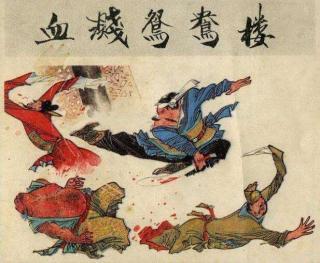 血溅鸳鸯楼